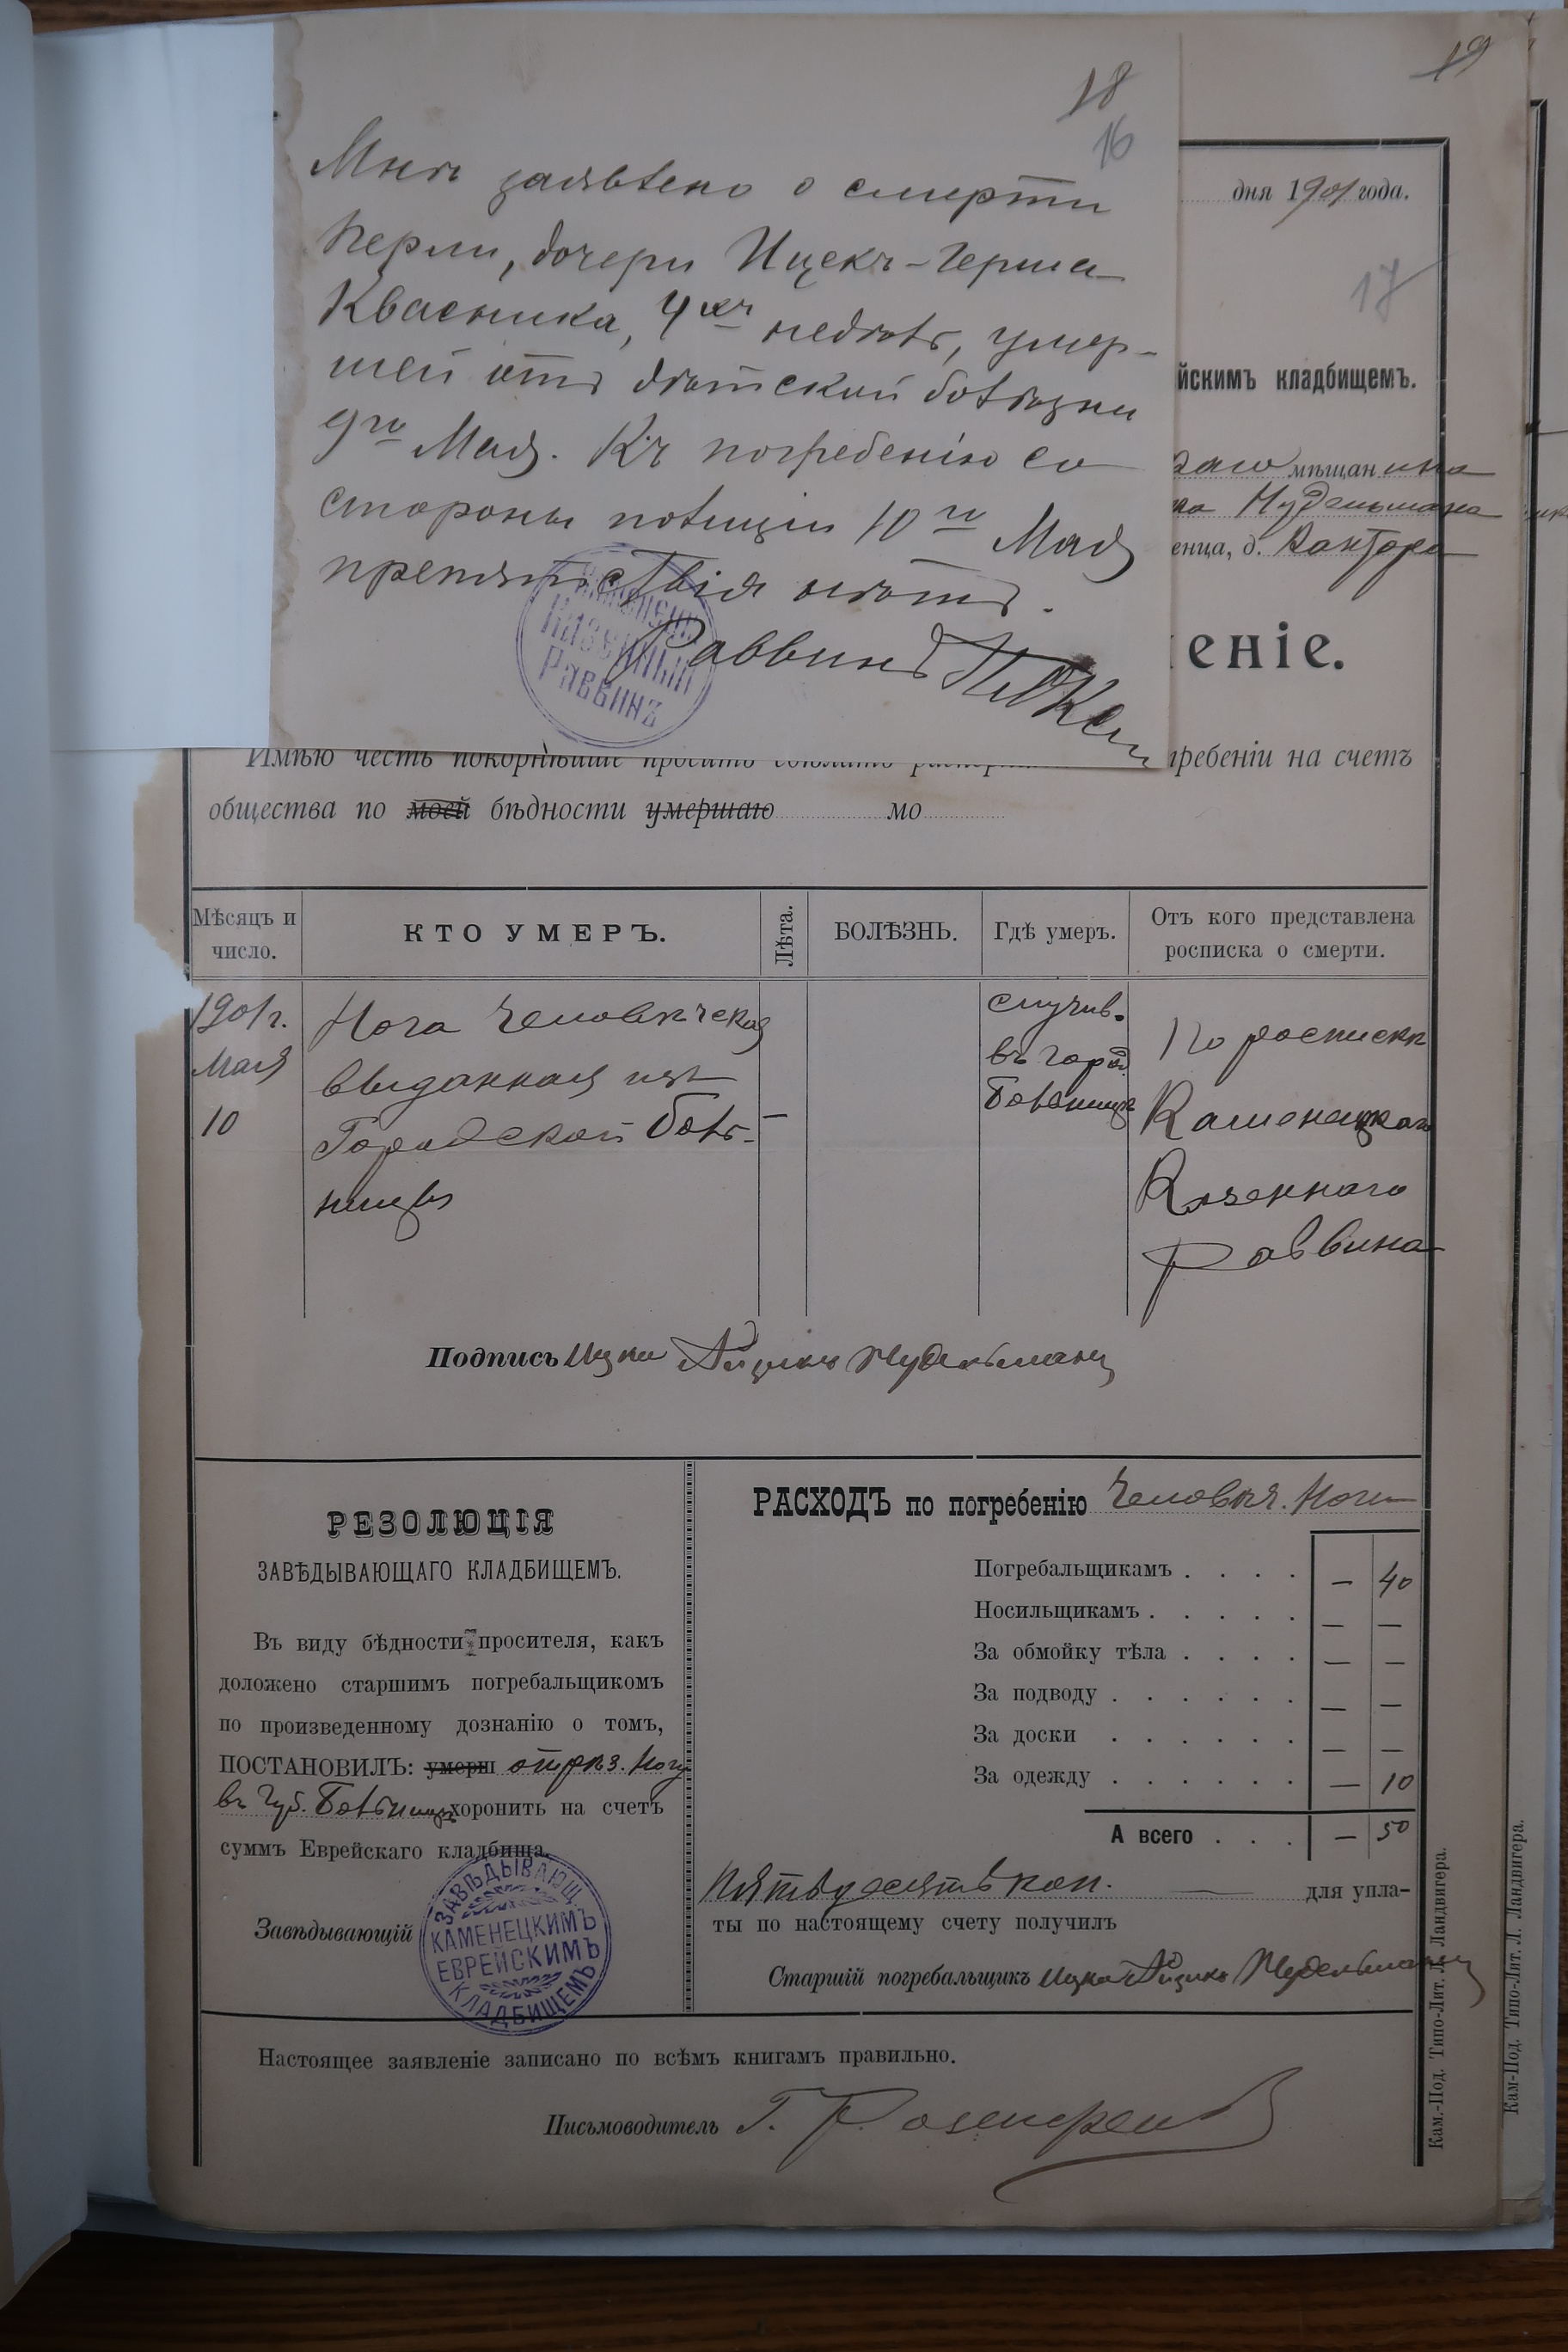 18
16
Мнѣ заявлено о смерти
Перли, дочери Ицекъ-Герша
Квасника, 4хъ недѣль, умер-
шей отъ дѣтской болѣзни
9го Мая. Къ погребенію со
стороны полиціи 10го Мая
препятствія нѣтъ.
Раввинъ
Казенный
Раввинъ
19
дня 1901 года.
17
йскимъ кладбищемъ.
мѣщанина
Нудельмана
енца, д. Кантора
еніе.
Имѣю честь покорнѣйше просить сдѣлать
гребеніи на счетъ
общества по моей бѣдности умершаго мо
Мѣсяцъ и число.
КТО УМЕРЪ.
Лѣта.
БОЛѢЗНЬ.
Гдѣ умеръ.
Отъ кого представлена росписка о смерти.
1901 г.
Мая
10
Нога человѣческая
выданная изъ
Городской боль-
ницы
—
случив.
въ город.
Больницѣ
По роспискѣ
Каменецкаго
Казеннаго
Раввина
Подпись Ицко Айзикъ Нудельманъ
РЕЗОЛЮЦІЯ
ЗАВѢДЫВАЮЩАГО КЛАДБИЩЕМЪ.
Въ виду бѣдности просителя, какъ
доложено старшимъ погребальщикомъ
по произведенному дознанію о томъ,
ПОСТАНОВИЛЪ: умерш отрѣз. ногу
въ Губ. Больницѣ хоронить на счетъ
суммъ Еврейскаго кладбища.
Завѣдывающій
ЗАВѢДЫВАЮЩ.
КАМЕНЕЦКИМЪ
ЕВРЕЙСКИМЪ
КЛАДБИЩЕМЪ
РАСХОДЪ по погребенію человѣч. ноги
Погребальщикамъ . . . . — 40
Носильщикамъ . . . . . — —
За обмойку тѣла . . . . — —
За подводу . . . . . . — —
За доски . . . . . . — —
За одежду . . . . . . — 10
А всего . . . — 50
Пятьдесятъ коп. — для упла-
ты по настоящему счету получилъ
Старшій погребальщикъ Ицко Айзикъ Нудельманъ
Настоящее заявленіе записано по всѣмъ книгамъ правильно.
Письмоводитель Г.
Кам.-Под. Типо-Лит. Л. Ландвигера.
Кам-Под. Типо-Лит. Л. Ландвигера.